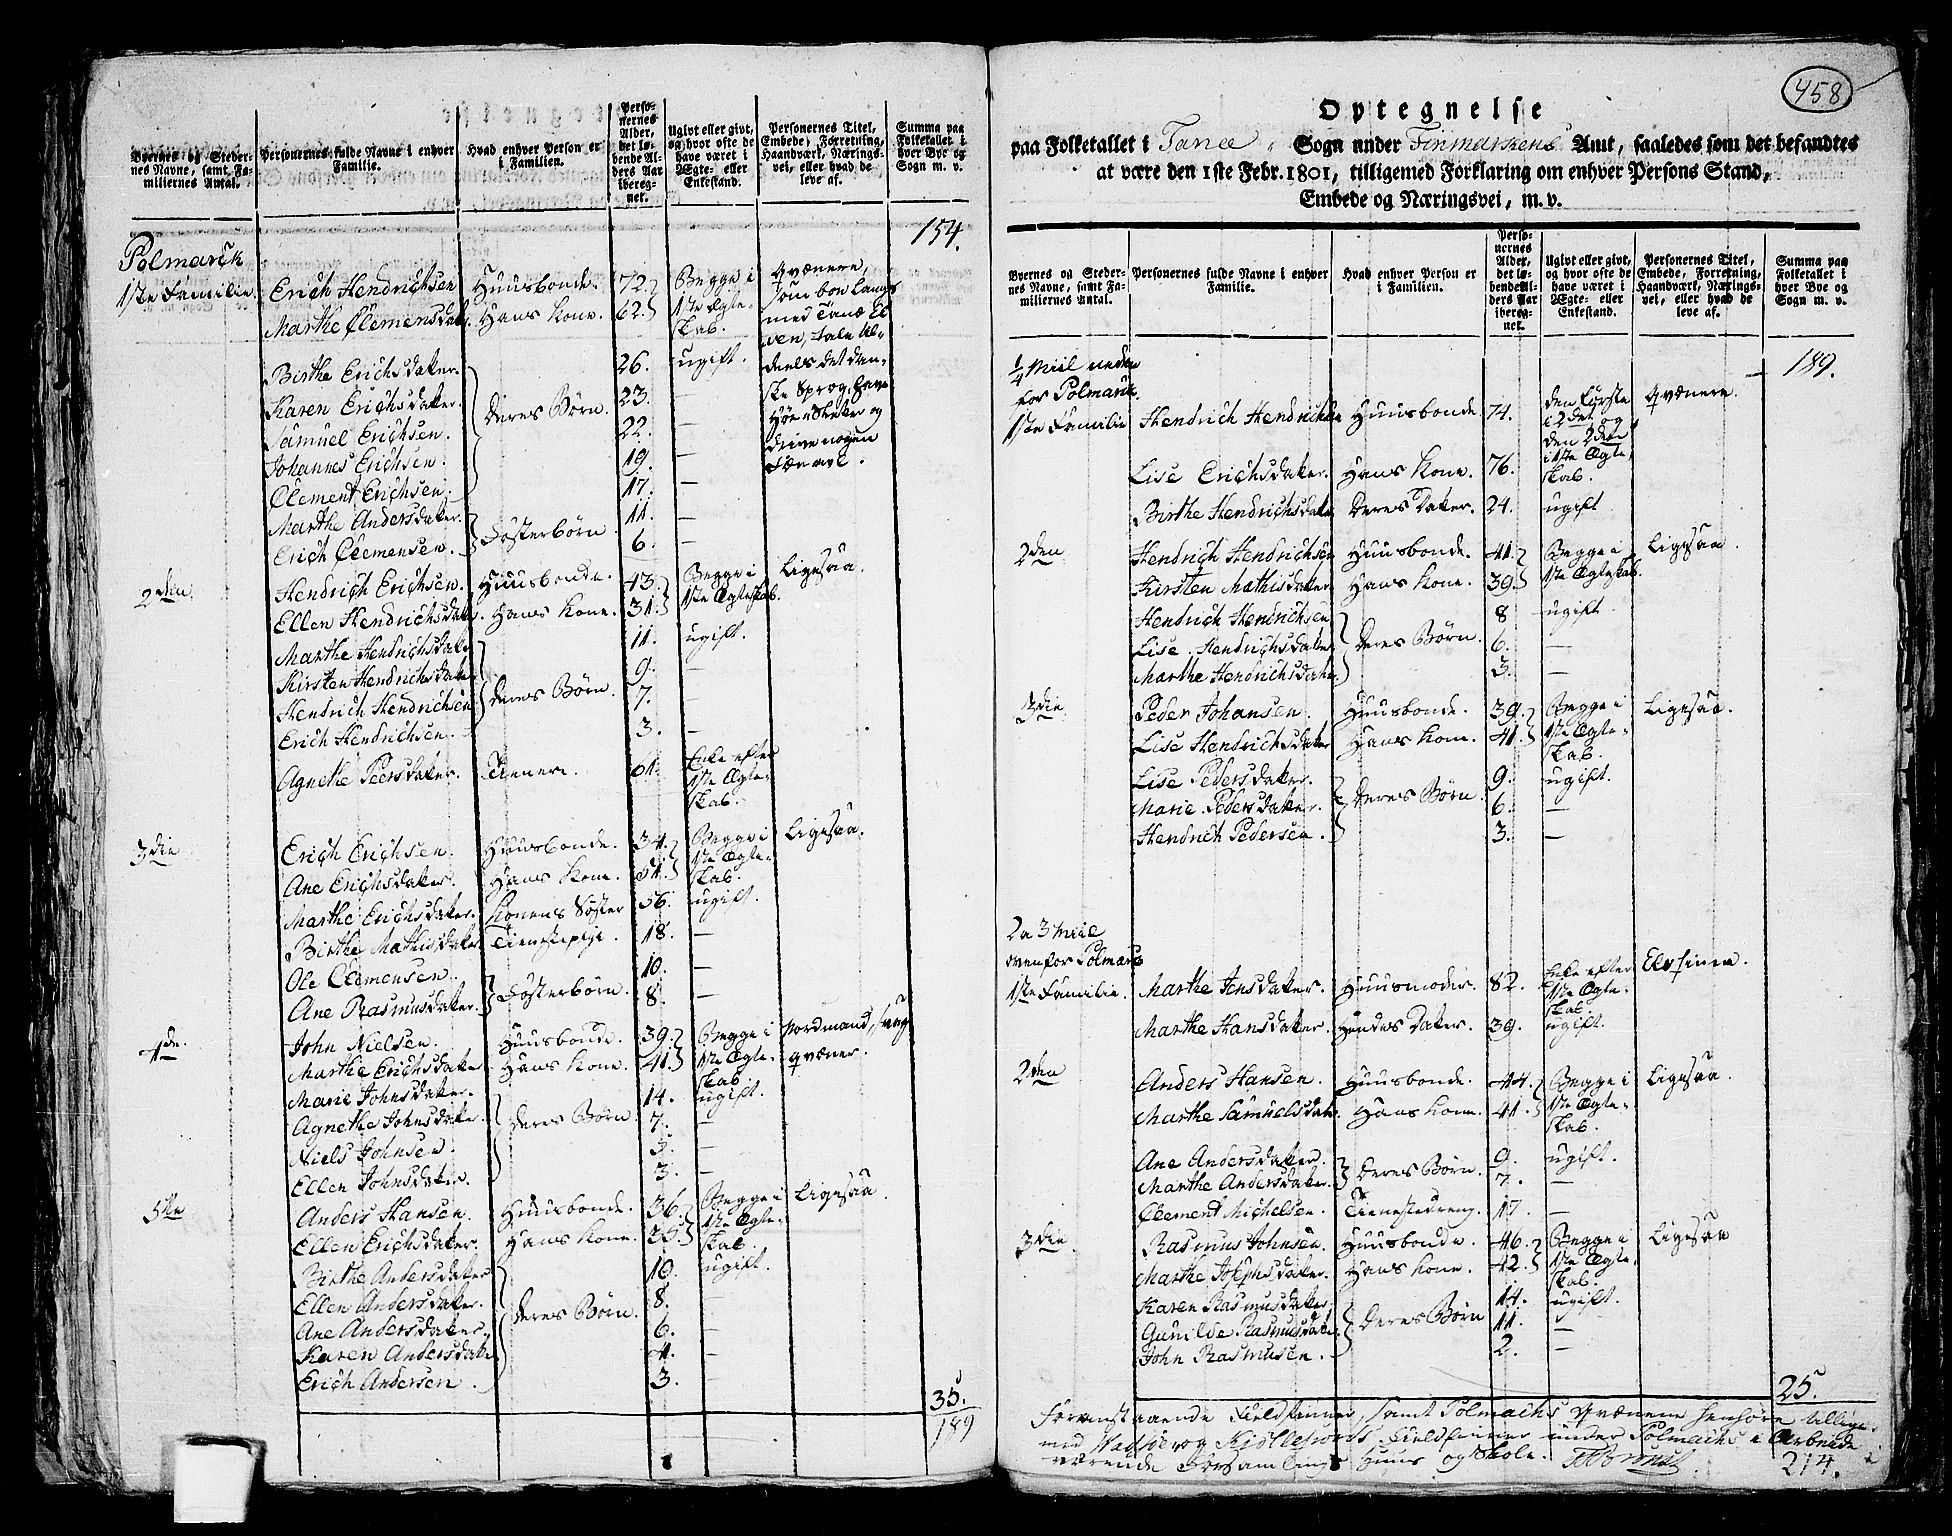 Byernes og Steder-
nes Navne, samt Fa-
miliernes Antal.
Personernes fulde Navne i enhver
Familie.
Hvad enhver Person er
i Familien.
Perso-
nernes
Alder,
det lø-
bende Al-
ders Aar
ibereg-
net.
Ugivt eller givt,
og hvor ofte de
have været i
Ægte- eller
Enkestand.
Personernes Titel,
Embede, Forretning,
Haandværk, Nærings-
vei, eller hvad de
leve af.
Summa paa
Folketallet i
hver Bye og
Sogn m. v.
154.
Polmarck
1ste Familie. Erich Hendrichsen Huusbonde. 72. Begge i 1ste Ægte-skab. Qvænere, som boe langs med Tanæ Elven, tale aldeels det danske Sprog, have Høe Sletter og drive nogen Fæ avl.
Marthe Clemensdater Hans Kone. 62.
Birthe Erichsdater. 26. ugift.
Karen Erichsdater. Deres Børn. 23. —
Samuel Erichsen. 22. —
Johannes Erichsen. 19. —
Clement Erichsen. 17. —
Marthe Andersdater. 11. —
Erich Clemensen. Fosterbørn 6. —
2den. Hendrich Erichsen. Huusbonde. 43. Begge i 1ste Ægteskab. Ligesaa.
Ellen Hendrichsdater. Hans Kone. 31.
Marthe Hendrichsdater 11. ugift.
Kirsten Hendrichsdater 9. —
Hendrich Hendrichsen Deres Børn. 7. —
Erich Hendrichsen. 3. —
Agnethe Peersdater. Tienere. 61. Enke efter 1ste Ægte-skab.
3die Erich Erichsen. Huusbonde. 34. Begge i 1ste Ægte-skab. Ligesaa.
Ane Erichsdater. Hans Kone. 51.
Marthe Erichsdater. Konens Søster 56. ugift.
Birthe Mathisdater Tienestepige. 18. —
Ole Clemensen. 10. —
Ane Rasmusdater. Fosterbørn. 8. —
4de. John Nielsen. Huusbonde. 39. Begge i 1ste Ægte-skab Nordmand, samt Qvæner.
Marthe Erichsdater Hans Kone. 41.
Marie Johnsdater. 14. ugift.
Agnethe Johnsdater. Deres Børn 7. —
Niels Johnsen. 5. —
Ellen Johnsdater. 3. —
5te Anders Hansen. Huusbonde. 36. Begge i 1ste Ægte-skab. Ligesaa.
Ellen Erichsdater. Hans Kone. 36.
Birthe Andersdater 10. ugift.
Ellen Andersdater. 8. —
Ane Andersdater. Deres Børn. 6. —
Karen Andersdater 4. —
Erich Andersen. 3.
35.
189
458
Optegnelse
paa Folketallet i Tanee Sogn under Finmarkens Amt, saaledes som det befandtes
at være den 1ste Febr. 1801, tilligemed Forklaring om enhver Persons Stand,
Embede og Næringsvei, m. v.
Byernes og Steder-
nes Navne, samt Fa-
miliernes Antal.
Personernes fulde Navne i enhver
Familie.
Hvad enhver Person er
i Familien.
Perso-
nernes
Alder,
det lø-
bende Al-
ders Aar
ibereg-
net.
Ugivt eller givt,
og hvor ofte de
have været i
Ægte- eller
Enkestand.
Personernes Titel,
Embede, Forretning,
Haandværk, Nærings-
vei, eller hvad de
leve af.
Summa paa
Folketallet i
hver Bye og
Sogn m. v.
189.
1/4 Miil neden
for Polmarck
1ste Familie Hendrich Hendrichsen Huusbonde 74. den første i 2det og den 2den i 1ste Ægte-skab. Qvænere
Lise Erichsdater. Hans Kone. 76.
Birthe Hendrichsdater Deres Dater. 24. ugift
2den Hendrich Hendrichsen Huusbonde. 41. Begge i 1ste Ægteskab. Ligesaa.
Kirsten Mathisdater Hans Kone. 39.
Hendrich Hendrichsen 8 ugift.
Lise Hendrichsdater Deres Børn 6. —
Marthe Hendrichsdater. 3. —
3die Peder Johansen. Huusbonde. 39. Begge i 1ste Ægte-skab. Ligesaa.
Lise Hendrichsdater Hans Kone. 41.
Lise Pedersdater. 9. ugift.
Marie Pedersdater. Deres Børn 6. —
Hendrich Pedersen. 3. —
2 a 3 Miil
ovenfor Polmarck
1ste Familie. Marthe Jensdater. Huusmoder. 82. Enke efter 1ste Ægte-skab. Elvfinner.
Marthe Hansdater. Hendes Dater. 39. ugift.
2den Anders Hansen. Huusbonde. 44. Begge i 1ste Ægte-skab. Ligesaa.
Marthe Samuelsdater. Hans Kone. 41.
Ane Andersdater. 9. ugift.
Marthe Andersdater. Deres Børn. 7. —
Clement Michelsen. Tienestedreng. 17. —
3die. Rasmus Johnsen. Huusbonde. 46. Begge i 1ste Ægte-skab. Ligesaa
Marthe Josephsdater. Hans Kone. 42.
Karen Rasmusdater 14. ugift.
Gunilde Rasmusdater Deres Børn 11. —
John Rasmusen. 2. —
25.
Foranstaaende Fieldfinner, samt Polmachs Qvænere henhøre tillige-
med Fieldfinner under Polmachs i Arbeide
værende Forsamlings Huus og Skole.
214.